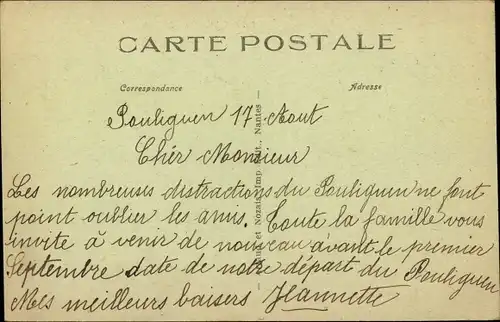 CARTE POSTALE
Correspondance
Adresse
Pouliguen 17 Aout
Chér Monsieur
Les nombreuses distractions du Pouliguen ne font
point oublier les amis. Toute la famille vous
invite à venir de nouveau avant le premier
Septembre date de notre départ du Pouliguen
Mes meilleurs baisers Jeannette
Nozais, Imp. Edit., Nantes —